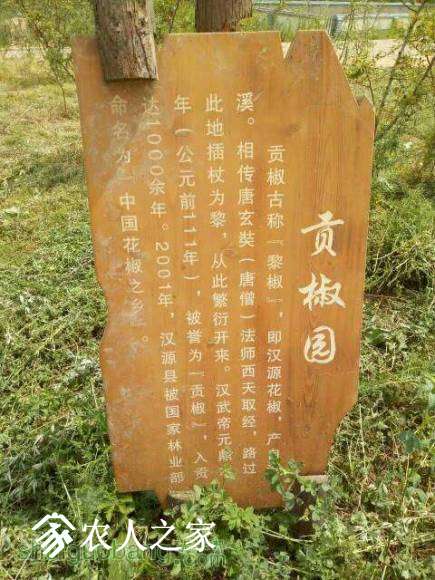 贡椒园
贡椒古称『黎椒』，即汉源花椒，产
溪。相传唐玄奘（唐僧）法师西天取经，路过
此地插杖为黎，从此繁衍开来。汉武帝元鼎
年（公元前111年），被誉为『贡椒』，入贡
达1000余年。2001年，汉源县被国家林业部
命名为『中国花椒之乡』。
农人之家